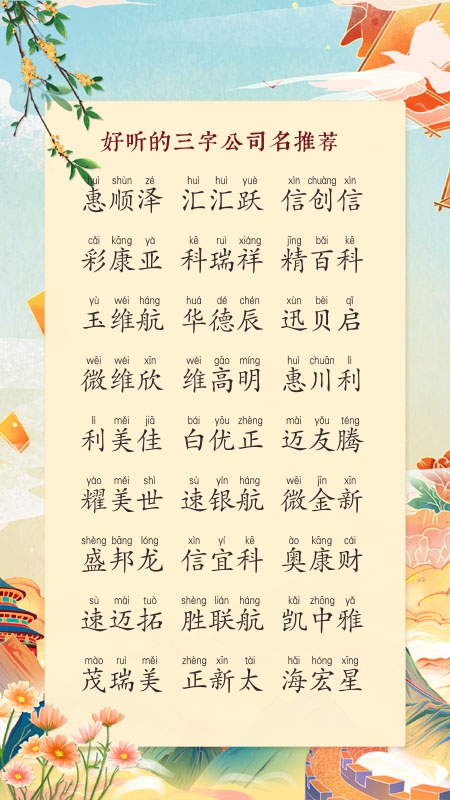 好听的三字公司名推荐
huì shùn zé huì huì yuè xìn chuàng xìn
惠顺泽 汇汇跃 信创信
cǎi kāng yà kē ruì xiáng jīng bǎi kē
彩康亚 科瑞祥 精百科
yù wéi háng huá dé chén xùn bèi qǐ
玉维航 华德辰 迅贝启
wēi wéi xīn wéi gāo míng huì chuān lì
微维欣 维高明 惠川利
lì měi jiā bái yōu zhèng mài yǒu téng
利美佳 白优正 迈友腾
yào měi shì sù yín háng wēi jīn xīn
耀美世 速银航 微金新
shèng bāng lóng xìn yí kē ào kāng cái
盛邦龙 信宜科 奥康财
sù mài tuò shèng lián háng kǎi zhōng yǎ
速迈拓 胜联航 凯中雅
mào ruì měi zhèng xīn tài hǎi hóng xīng
茂瑞美 正新太 海宏星